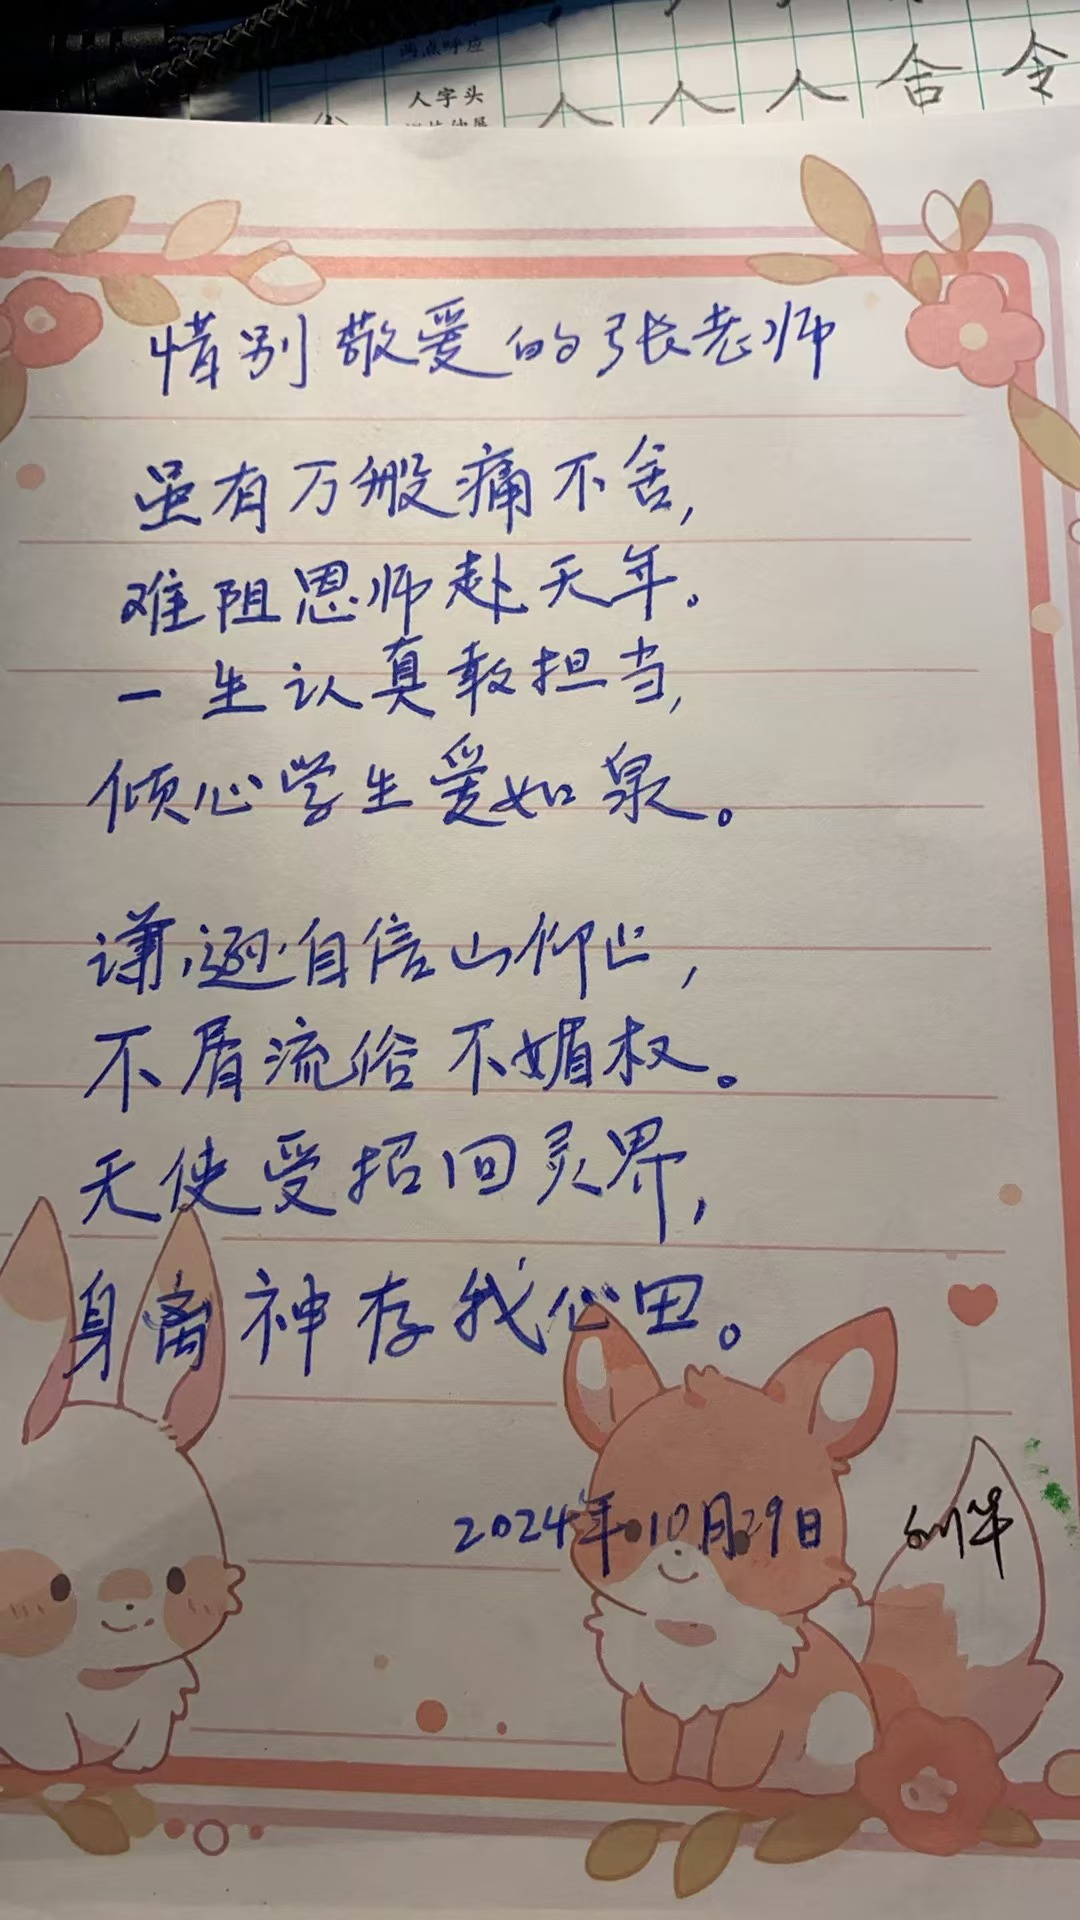 两点呼应
人字头
人 人 人 合 令
惜别敬爱的张老师
虽有万般痛不舍,
难阻恩师赴天年。
一生认真敢担当,
倾心学生爱如泉。
谦逊自信山仰止,
不屑流俗不媚权。
天使受招回灵界,
身离神存我心田。
2024年10月29日